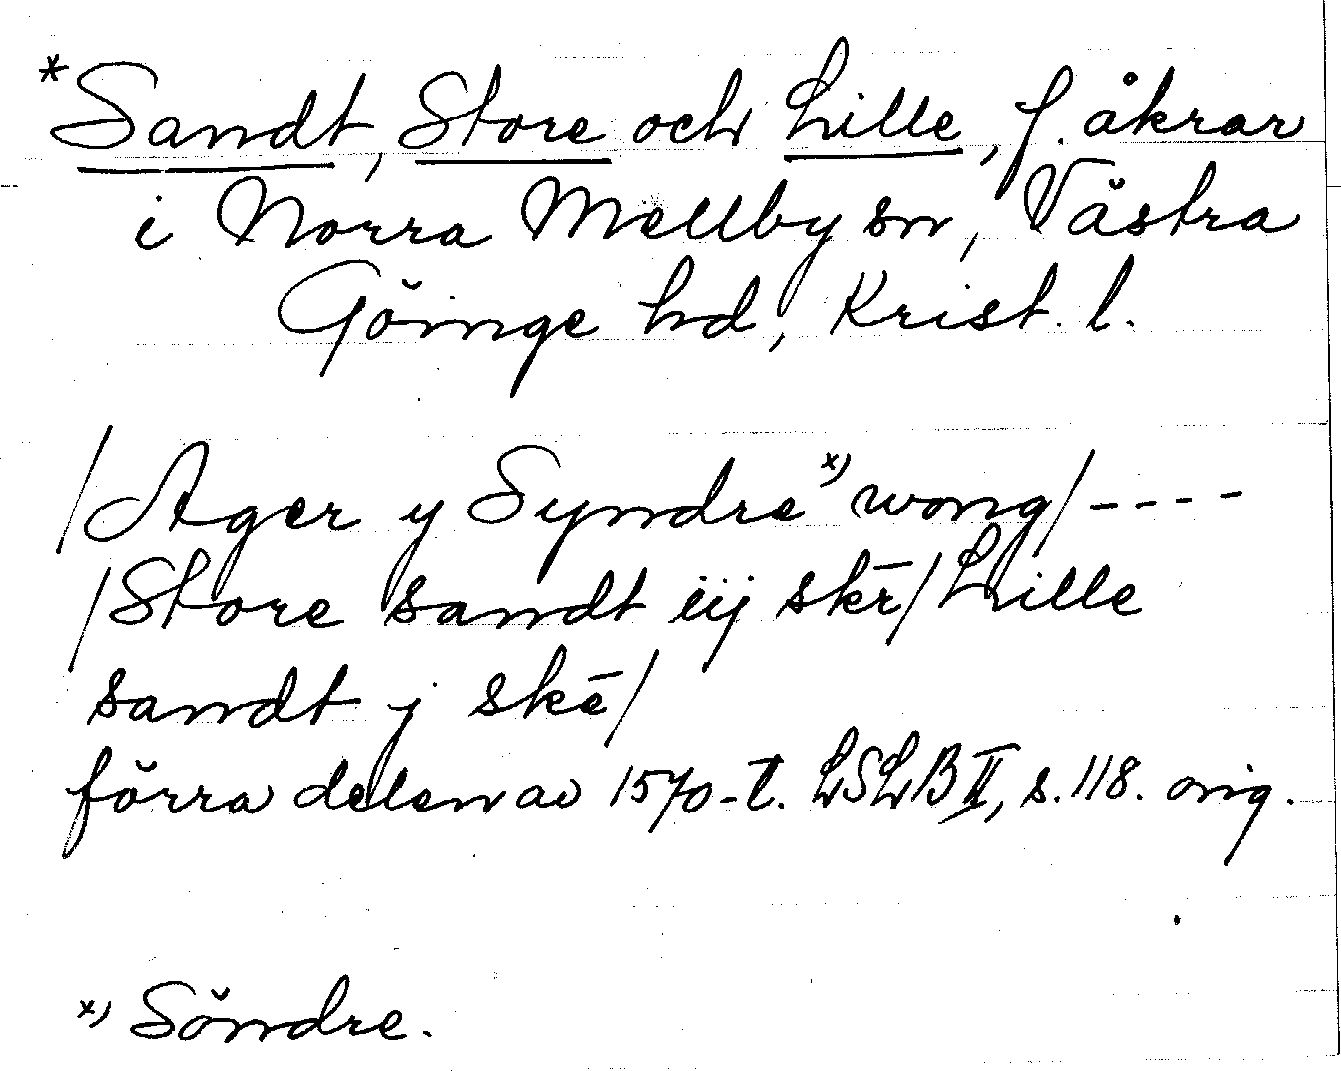 *Sandt, Store och Lille, f. åkrar
i Norra Mellby sn, Västra
Göinge hd, Krist. l.
/Ager y Syndre x) wong/----
/Store sandt iij skē/Lille
sandt j skē/
förra delen av 1570-t. LSLB II, s. 118. orig.
x) Söndre.